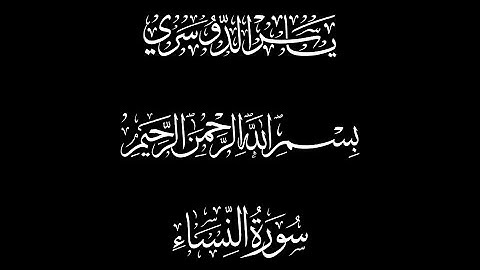 ياسر الدوسري
بِسْمِ اللَّهِ الرَّحْمَٰنِ الرَّحِيمِ
سُورَةُ النِّسَاءِ